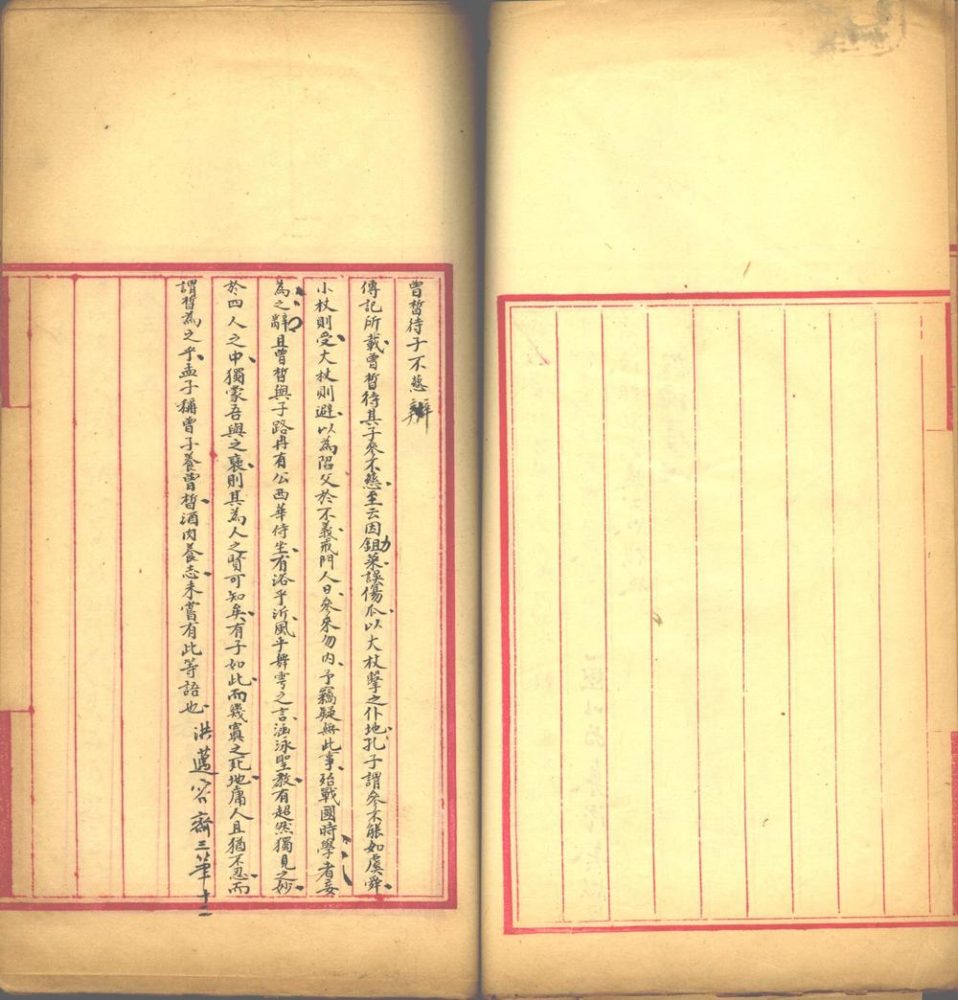 曾晳待子不慈辨
傳記所載曾晳待其子參不慈至云因鉏菜誤傷瓜以大杖擊之仆地孔子謂參不能如虞舜
小杖則受大杖則避以為陷父於不義戒門人曰參來勿內予竊疑無此事殆戰國時學者妄
為之辭且曾晳與子路冉有公西華侍坐有浴乎沂風乎舞雩之言涵泳聖教有超然獨見之妙
於四人之中獨蒙吾與之褒則其為人之賢可知矣有子如此而幾寘之死地庸人且猶不忍而
謂晳為之乎孟子稱曾子養曾晳酒肉養志未嘗有此等語也 洪邁容齋三筆十二